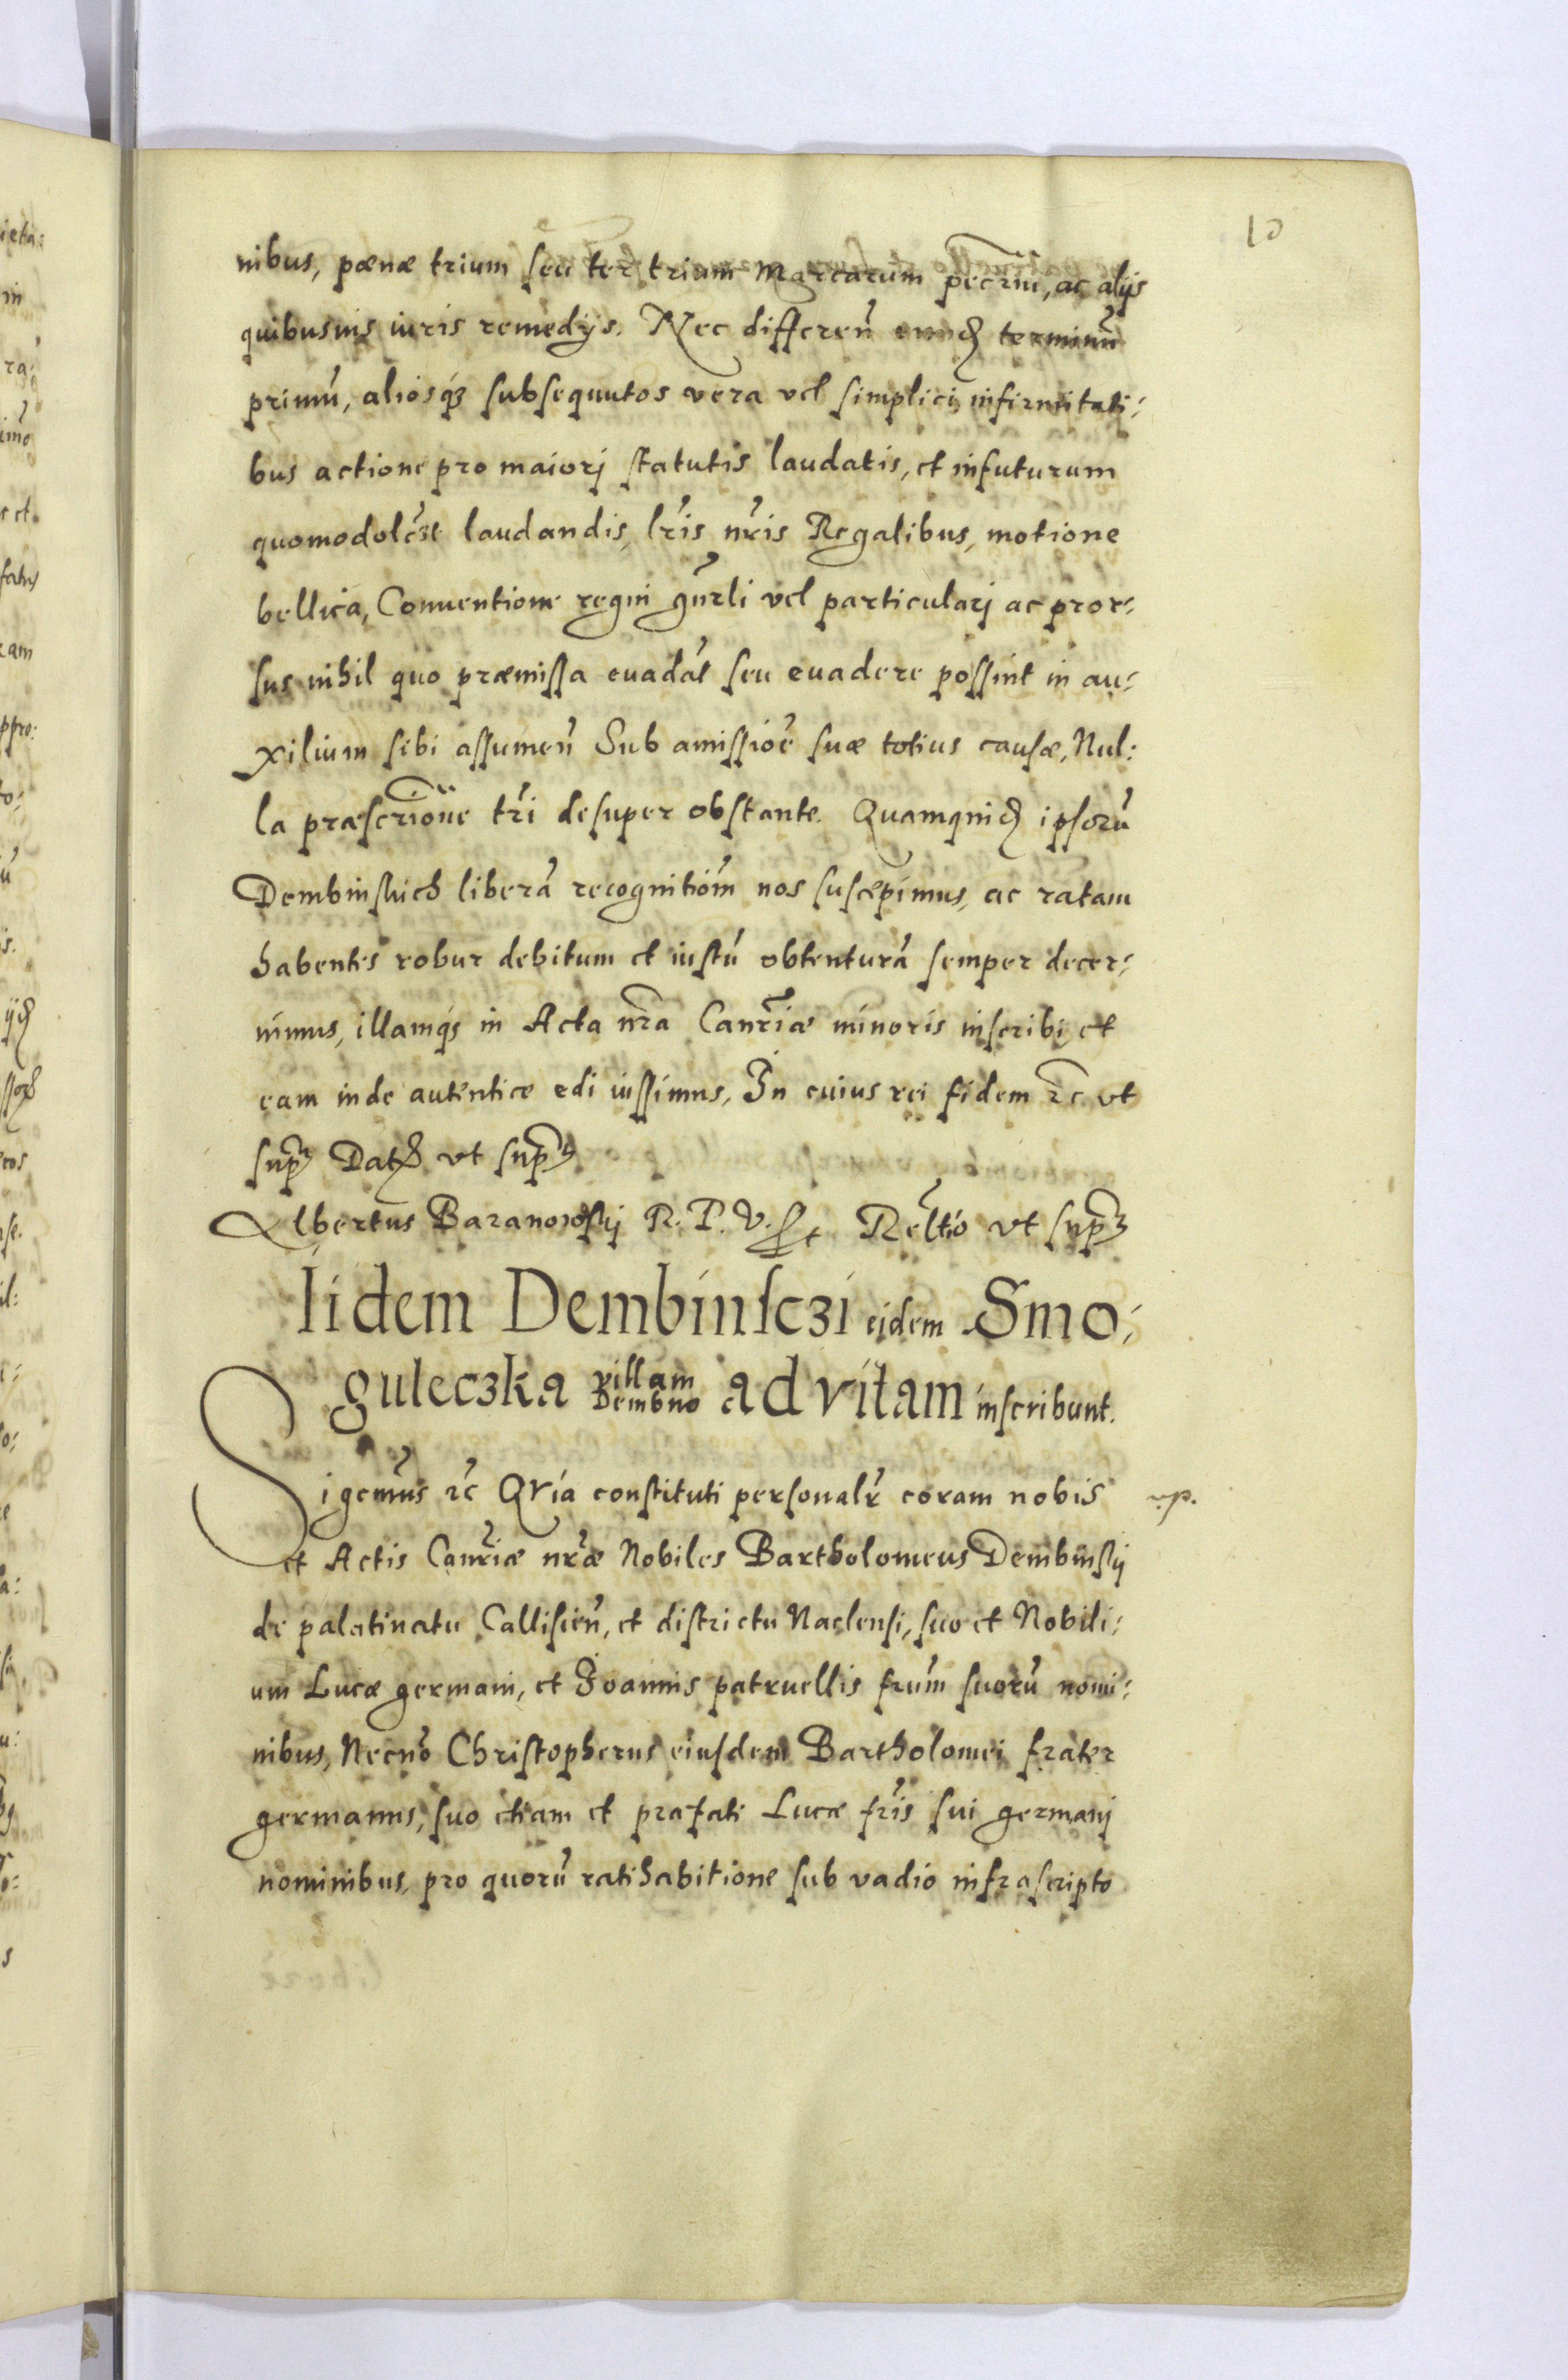 10
nibus, pœnæ trium seu ter trium Marcarum pecrm̃, ac alijs
quibusuis iuris remedijs. Nec differeñ eund terminũ
primũ, aliosq3 subsequutos vera vel simplici infirmitati:
bus actione pro maiori statutis laudatis, et infuturum
quomodolc3t laudandis, lr̃is nr̃is Regalibus, motione
bellica, Conuentione regni gñrli vel particulari ac pror:
sus nihil quo præmissa euadãt seu euadere possint in au:
xilium sibi assumeñ Sub amissioẽ suæ totius causæ, Nul:
la præscriõne tr̃i desuper obstante. Quamquid ipsorũ
Dembinskich liberã recognitiõm nos suscepimus, ac ratam
habentes robur debitum et iustũ obtenturã semper decer:
nimus, illamq3 in Acta nr̃a Canr̃iæ minoris inscribi, et
eam inde autentice edi iussimus, In cuius rei fidem rc̃ ut
supr̃ Dat ut supr̃
Albertus Baranowskij R. P. V. sst Reltĩo ut supr̃
Iidem Dembinsczi eidem Smo:
guleczka villam Dembno ad vitam inscribunt.
Sigemũs rc̃ Qvia constituti personalr̃ coram nobis
v.p.
et Actis Canr̃iæ nr̃æ Nobiles Bartholomeus Dembinskij
de palatinatu Callisieñ, et districtu Naclensi, suo et Nobili:
um Lucæ germani, et Joannis patruellis frũm suorũ nomi:
nibus, Necnõ Christopherus eiusdem Bartholomei frater
germanus, suo etiam et præfati Lucæ fr̃is sui germani
nominibus, pro quorũ ratihabitione sub vadio infrascripto